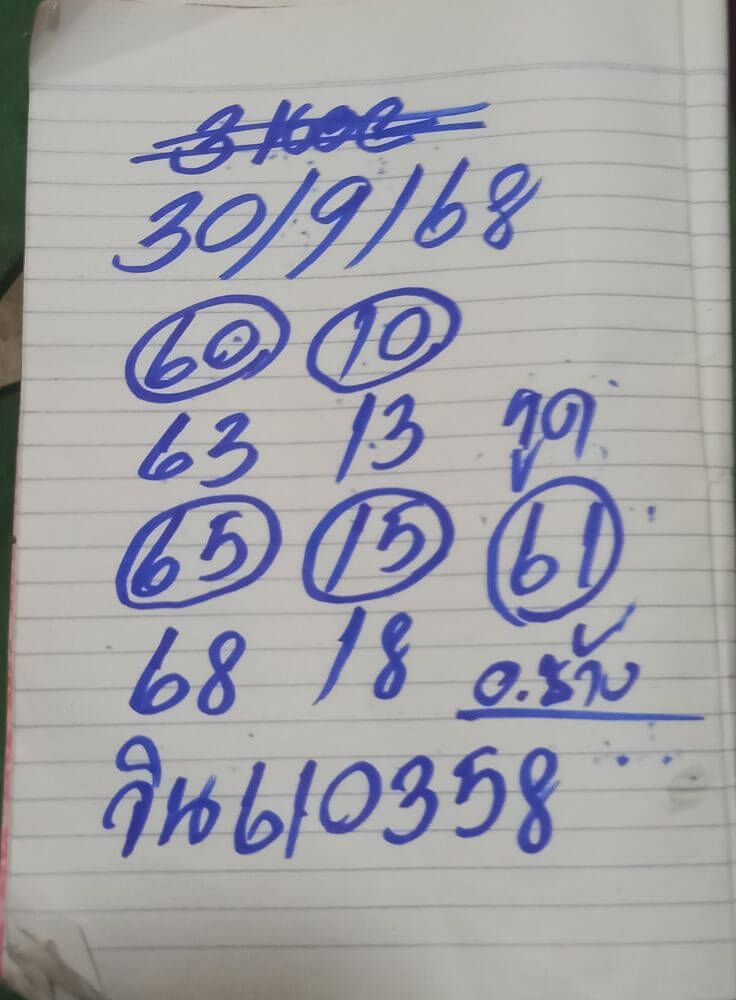 30/9/68
60 10
63 13 รูด
65 15 61
68 18 อ.ช้าง
วิน 610358